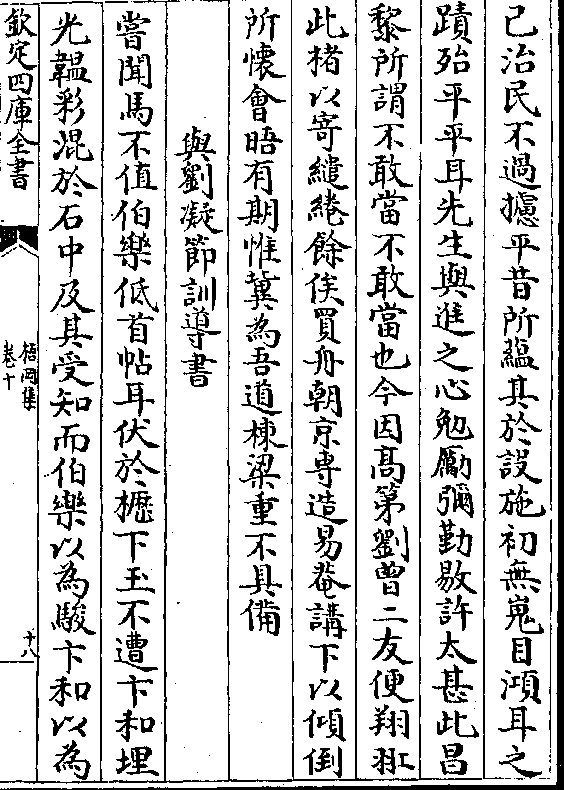 己治民不過攄平昔所蘊其於設施初無嵬目澒耳之
蹟殆平平耳先生與進之心勉勵彌勤敭許太甚此昌
黎所謂不敢當不敢當也今因高第劉曾二友便翔羾
此楮以寄繾綣餘俟買舟朝京專造易菴講下以傾倒
所懷會晤有期惟冀為吾道棟梁重不具備
與劉凝節訓導書
嘗聞馬不值伯樂低首帖耳伏於櫪下玉不遭卞和埋
光韞彩混於石中及其受知而伯樂以為駿卞和以為
欽定四庫全書
梧岡集
卷十
十八